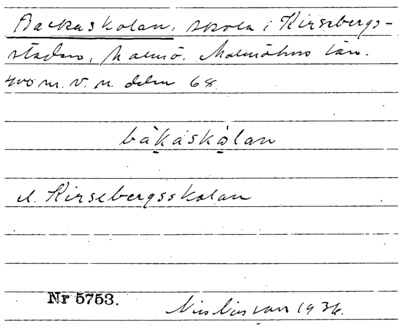 Backaskolan, skola i Kirsebergs-
staden, Malmö. Malmöhus län.
400 m. v. n. delen 68.
bàkaskòlan
el. Kirsebergsskolan
Nr 5753.
1936.